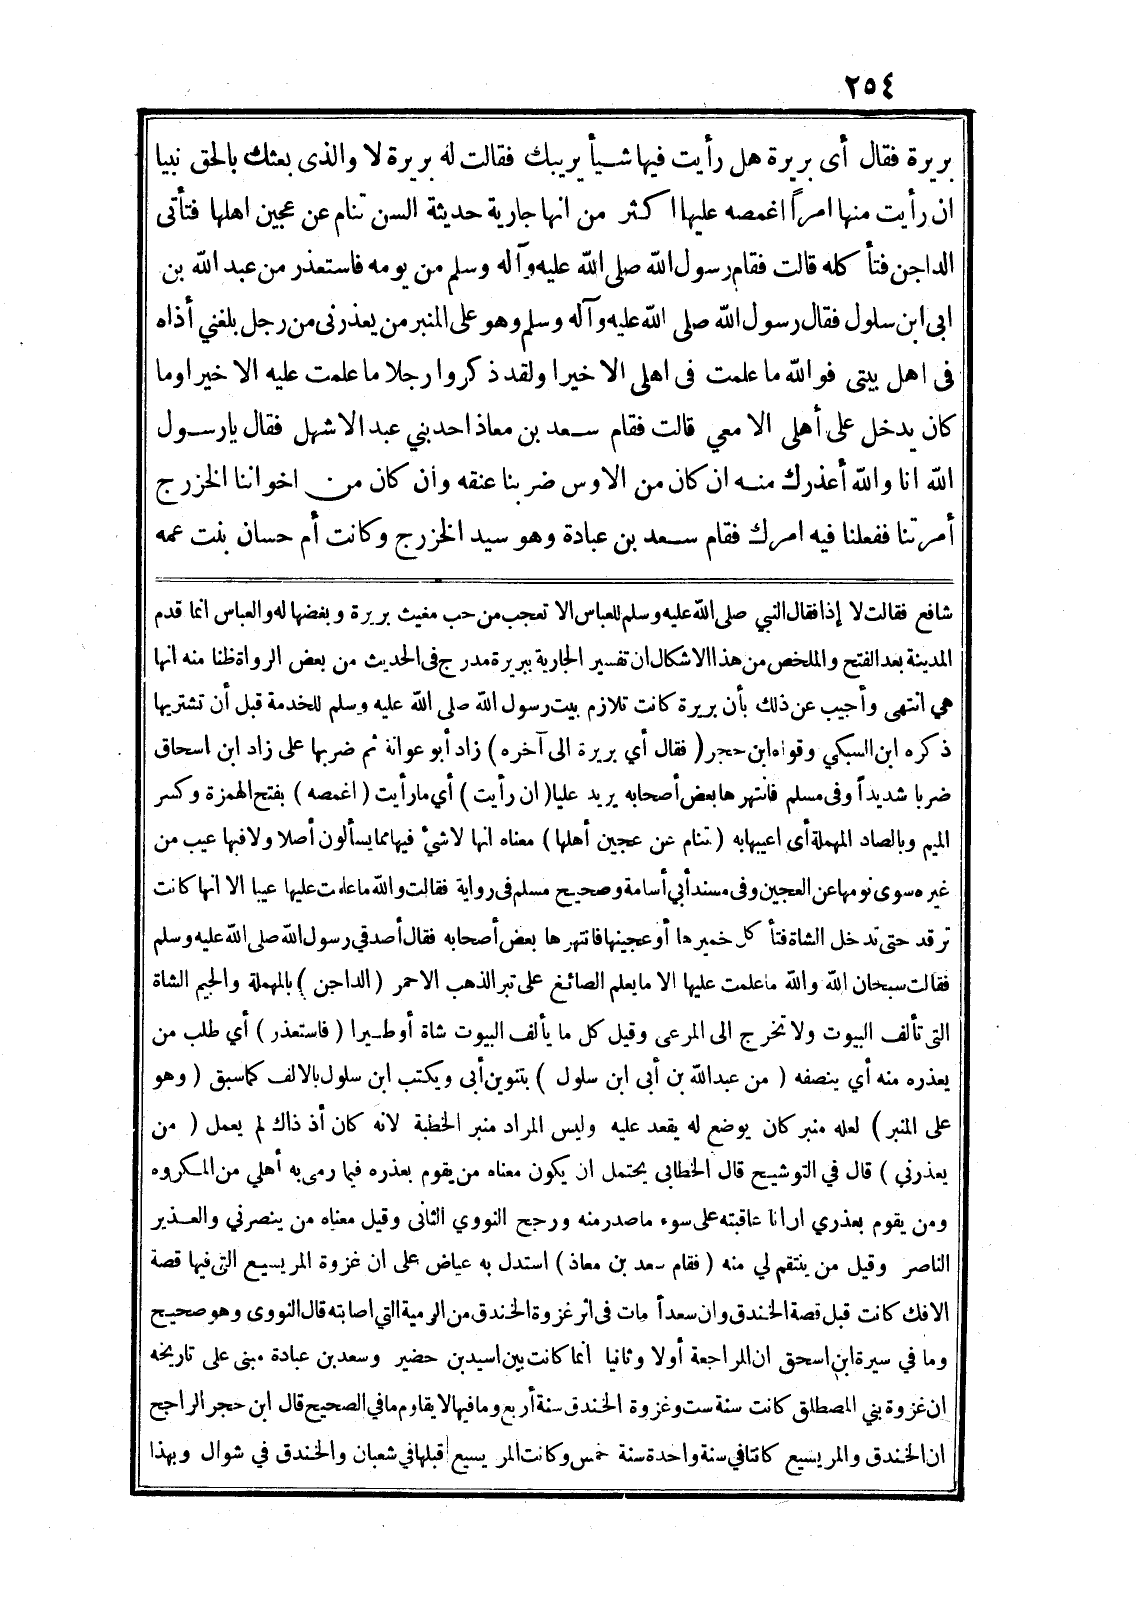 ٢٥٤
بريرة فقال أى بريرة هل رأيت فيها شيأ يريبك فقالت له بريرة لا والذى بعثك بالحق نبيا
ان رأيت منها امرا اغمصه عليها اكثر من انها جارية حديثة السن تنام عن عجين اهلها فتأتى
الداجن فتأ كله قالت فقام رسول الله صلى الله عليه وآله وسلم من يومه فاستعذر من عبد الله بن
ابى ابن سلول فقال رسول الله صلى الله عليه وآله وسلم وهو على المنبر من يعذرنى من رجل بلغني أذاه
فى اهل بيتى فوالله ما علمت فى اهلى الا خيرا ولقد ذكروا رجلا ما علمت عليه الا خيرا وما
كان يدخل على أهلى الا معي قالت فقام سعد بن معاذ احد بني عبد الاشهل فقال يارسول
الله انا والله أعذرك منه ان كان من الاوس ضربنا عنقه وان كان من اخواننا الخزرج
أمرتنا ففعلنا فيه امرك فقام سعد بن عبادة وهو سيد الخزرج وكانت أم حسان بنت عمه
شافع فقالت لا إذا فقال النبي صلى الله عليه وسلم للعباس الا تعجب من حب مغيث بريرة وبغضها له والعباس انما قدم
المدينة بعد الفتح والملخص من هذا الاشكال ان تفسير الجارية ببريرة مدرج فى الحديث من بعض الرواة ظنا منه انها
هي انتهى وأجيب عن ذلك بأن بريرة كانت تلازم بيت رسول الله صلى الله عليه وسلم للخدمة قبل أن تشتريها
ذكره ابن السبكي وقواه ابن حجر ( فقال أي بريرة الى آخره ) زاد أبو عوانة ثم ضربها على زاد ابن اسحاق
ضربا شديدا وفى مسلم فانتهرها بعض أصحابه يريد عليا ( ان رأيت ) أي ما رأيت ( اغمصه ) بفتح الهمزة وكسر
الميم وبالصاد المهملة أى اعيبها به ( تنام عن عجين أهلها ) معناه انها لا شيء فيها مما يسألون أصلا ولا فيها عيب من
غيره سوى نومها عن العجين وفى مسند أبي أسامة وصحيح مسلم فى رواية فقالت والله ما علمت عليها عيبا الا انها كانت
ترقد حتى تدخل الشاة فتأ كل خميرها أو عجينها فانتهرها بعض أصحابه فقال أصدقي رسول الله صلى الله عليه وسلم
فقالت سبحان الله والله ما علمت عليها الا ما يعلم الصائغ على تبر الذهب الاحمر ( الداجن ) بالمهملة والجيم الشاة
التى تألف البيوت ولا تخرج الى المرعى وقيل كل ما يألف البيوت شاة أو طيرا ( فاستعذر ) أي طلب من
يعذره منه أي ينصفه ( من عبدالله بن أبى ابن سلول ) بتنوين أبى ويكتب ابن سلول بالالف كما سبق ( وهو
على المنبر ) لعله منبر كان يوضع له يقعد عليه وليس المراد منبر الخطبة لانه كان أذ ذاك لم يعمل ( من
يعذرني ) قال في التوشيح قال الخطابى يحتمل ان يكون معناه من يقوم بعذره فيما رمى به أهلي من المكروه
ومن يقوم بعذري ارانا عاقبته على سوء ما صدر منه ورجح النووي الثانى وقيل معناه من ينصرني والعذير
الناصر وقيل من ينتقم لي منه ( فقام سعد بن معاذ ) استدل به عياض على ان غزوة المريسيع التى فيها قصة
الافك كانت قبل قصة الخندق وان سعدا مات فى اثر غزوة الخندق من الرمية التي اصابته قال النووى وهو صحيح
وما في سيرة ابن اسحق ان المراجعة أولا وثانيا انما كانت بين اسيد بن حضير وسعد بن عبادة مبنى على تاريخه
ان غزوة بني المصطلق كانت سنة ست وغزوة الخندق سنة أربع وما فيها لا يقاوم ما في الصحيح قال ابن حجر الراجح
ان الخندق والمريسيع كانتا في سنة واحدة سنة خمس وكانت المريسيع قبلها في شعبان والخندق في شوال وبهذا